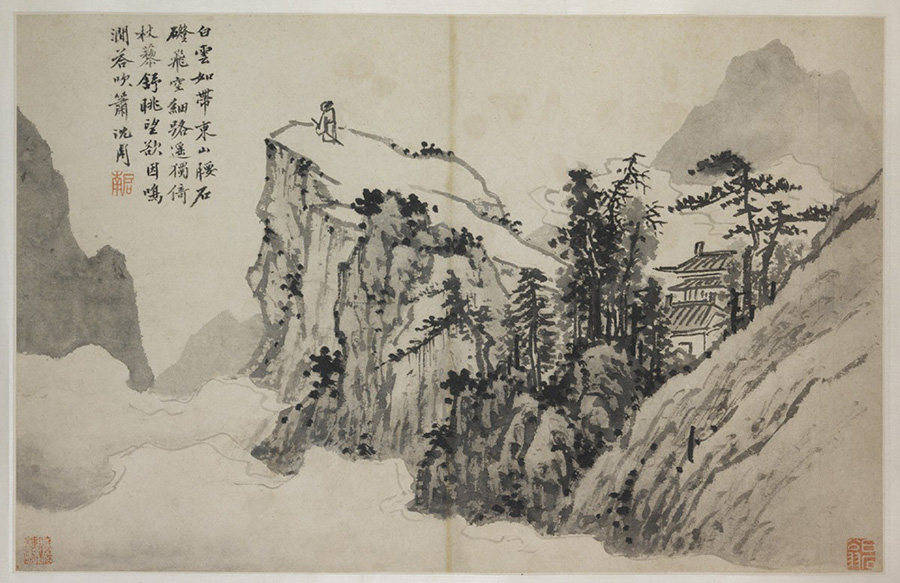 白雲如帶束山腰石
磴飛空細路遥獨倚
杖藜舒眺望欲因鳴
澗荅吹簫沈周
啓南